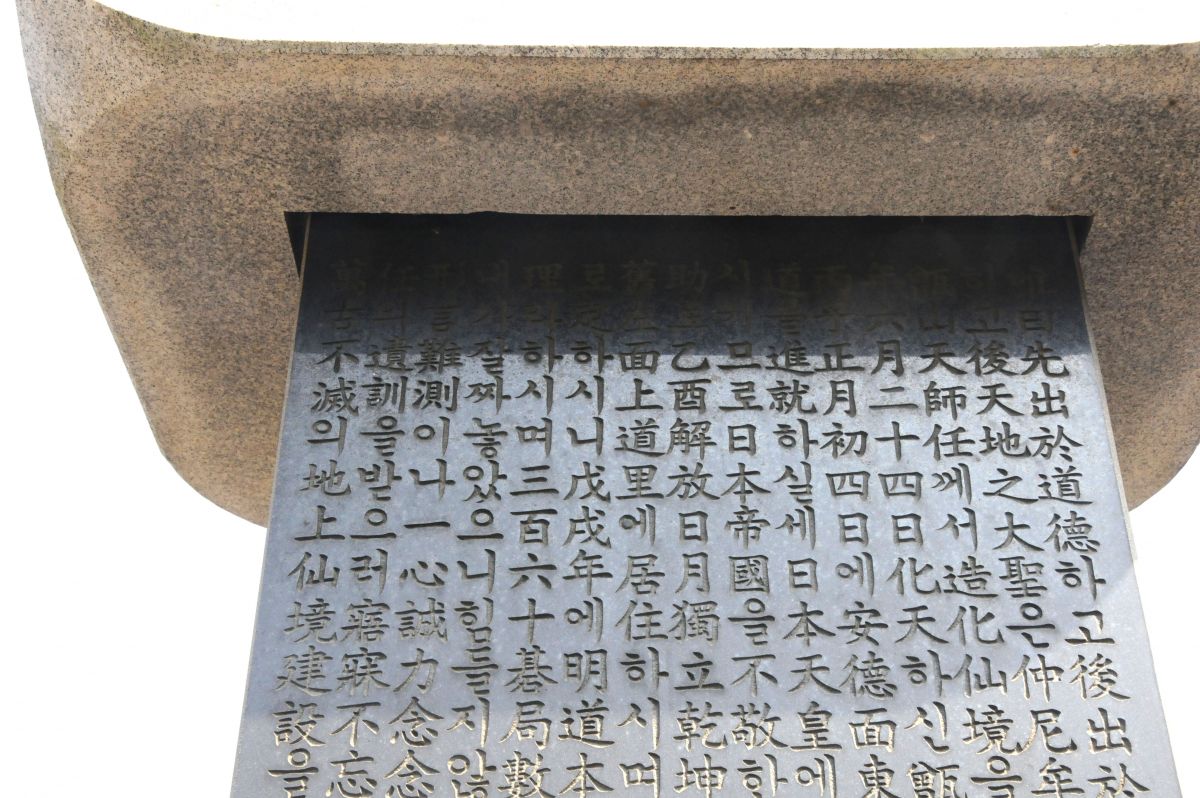 曰先出於道德하고後出於
고後天地之大聖은仲尼牟
甑山天師任께서造化仙境을
年六月二十四日化天하신甑
丙子正月初四日에安德面東
道를進就하실세日本天皇에
시므로日本帝國을不敬하
助乙酉解放日月獨立乾坤
舊面上道里에居住하시며
로定하시니戊戌年에明道本
理라하시며三百六十碁局數
내가잘짜놓았으니힘들지않
形言難測이나一心誠力念念
任의遺訓을받으러寤寐不忘
萬古不滅의地上仙境建設을